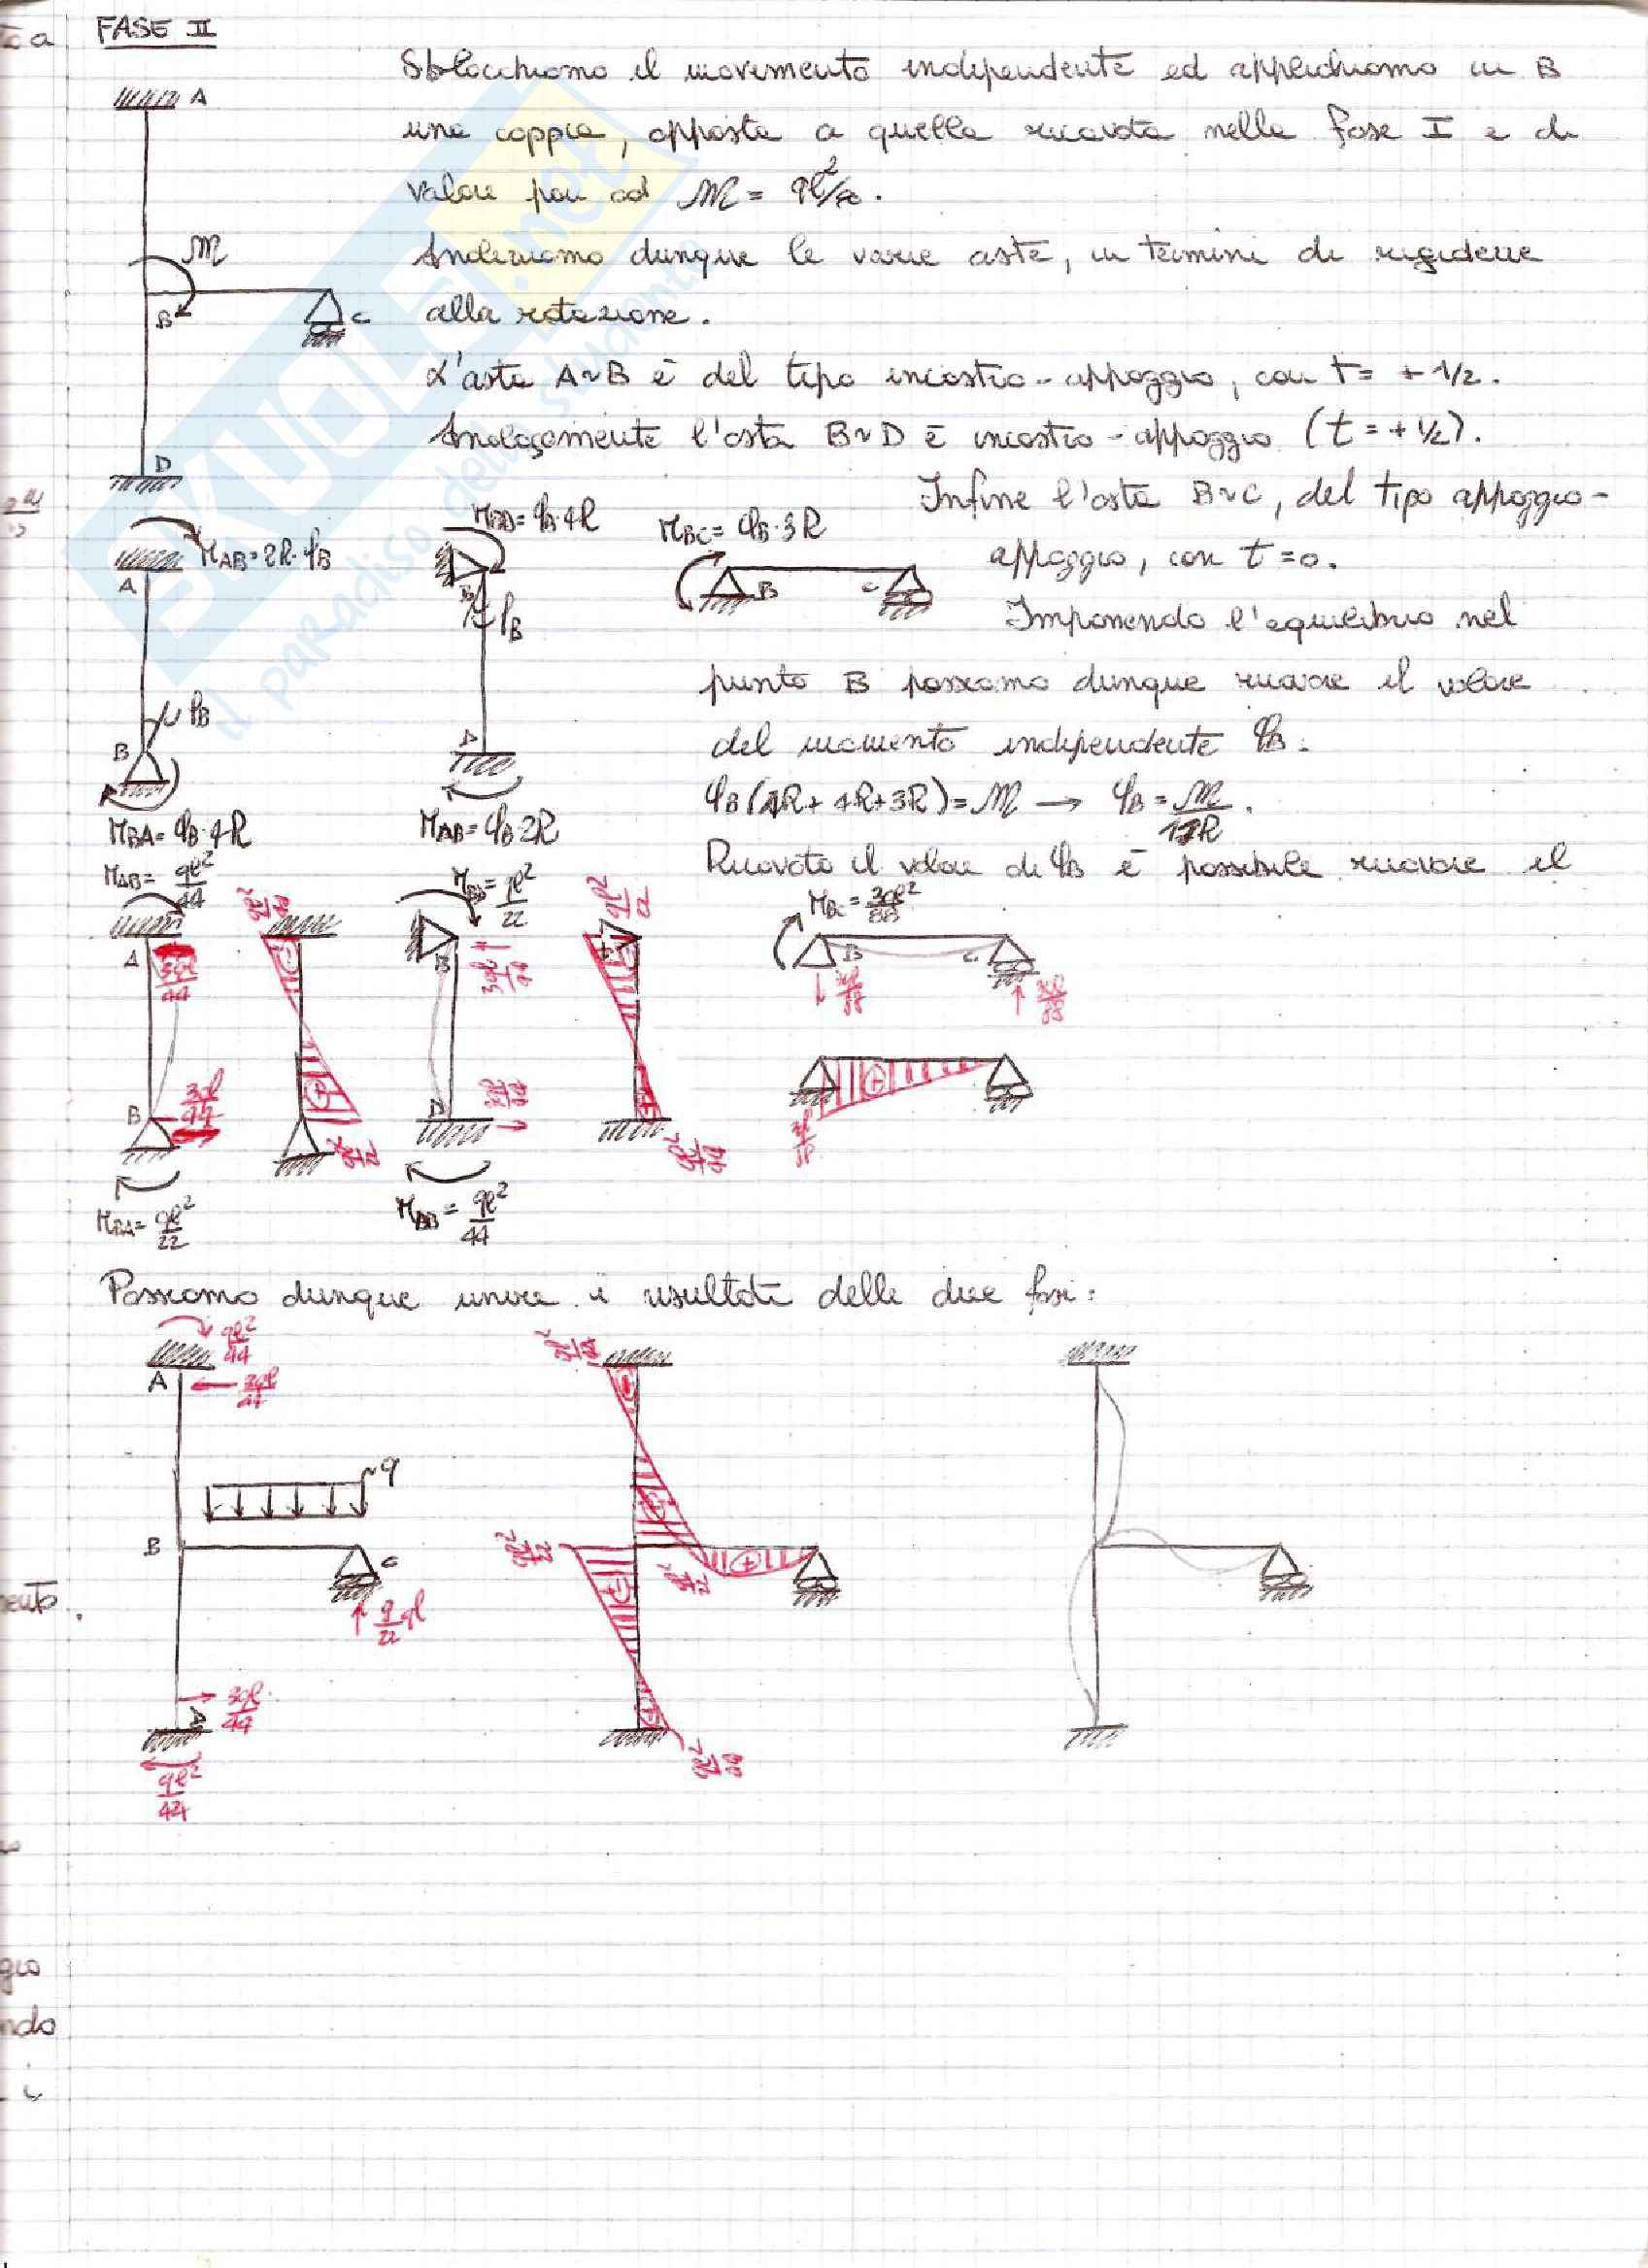 FASE II
Sblocchiamo il movimento indipendente ed applichiamo in B
una coppia, opposta a quella ricavata nella fase I e di
valore pari ad M = ql²/8.
Analizziamo dunque le varie aste, in termini di rigidezze
alla rotazione.
L'asta A~B è del tipo incastro-appoggio, con t = +1/2.
Analogamente l'asta B~D è incastro-appoggio (t = +1/2).
Infine l'asta B~C, del tipo appoggio-
appoggio, con t = 0.
Imponendo l'equilibrio nel
punto B possiamo dunque ricavare il valore
del momento indipendente φB.
φB(4R + 4R + 3R) = M → φB = M/11R.
Ricavato il valore di φB è possibile ricavare il
A
M
B
C
D
MAB = 2R·φB
A
φB
B
MBA = φB·4R
MBD = φB·4R
B
φB
D
MAB = φB·2R
MBC = φB·3R
B
C
MAB = ql²/44
A
3ql/44
B
3ql/44
MBA = ql²/22
ql²/44
ql²/22
MBD = ql²/22
B
3ql/44
D
3ql/44
ql²/44
ql²/22
ql²/44
MBC = 3ql²/88
B
C
Possiamo dunque unire i risultati delle due fasi:
ql²/44
A
3ql/44
q
B
C
9/22 ql
3ql/44
ql²/44
ql²/44
ql²/22
ql²/22
ql²/44
SKUOLA.net
il paradiso dello studente